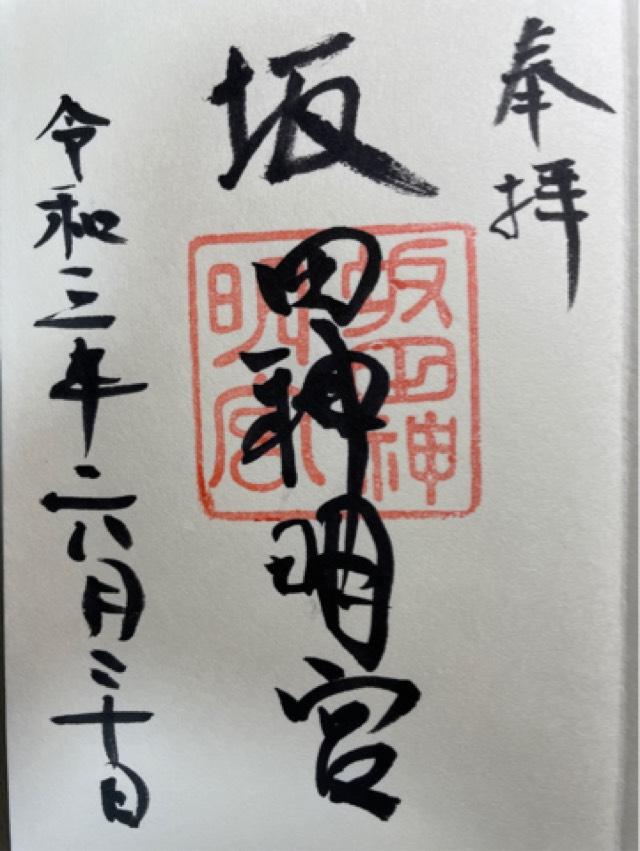 奉拝
坂田神明宮
坂田神
明宮
令和三年六月二十日